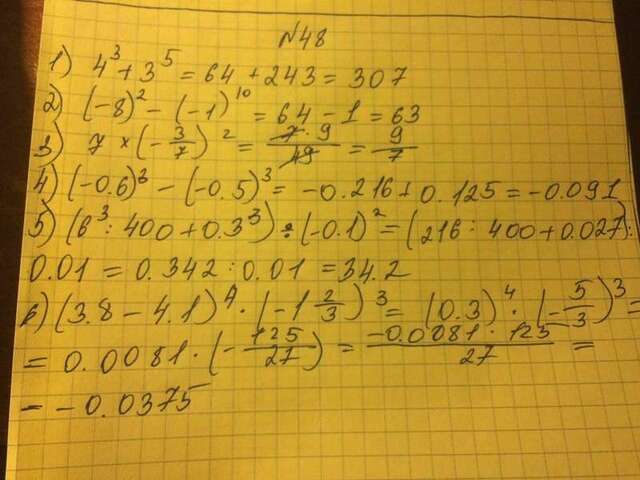 N48
1) 4³ + 3⁵ = 64 + 243 = 307
2) (-8)² - (-1)¹⁰ = 64 - 1 = 63
3) 7 × (-3/7)² = 7·9/49 = 9/7
4) (-0.6)³ - (-0.5)³ = -0.216 + 0.125 = -0.091
5) (6³ : 400 + 0.3³) : (-0.1)² = (216 : 400 + 0.027) :
0.01 = 0.342 : 0.01 = 34.2
6) (3.8 - 4.1)⁴ · (-1 2/3)³ = (0.3)⁴ · (-5/3)³ =
= 0.0081 · (-125/27) = -0.0081 · 125/27 =
= -0.0375